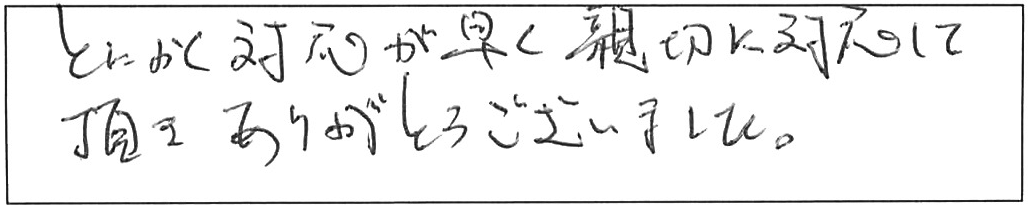 とにかく対応が早く親切に対応して
頂き ありがとうございました。